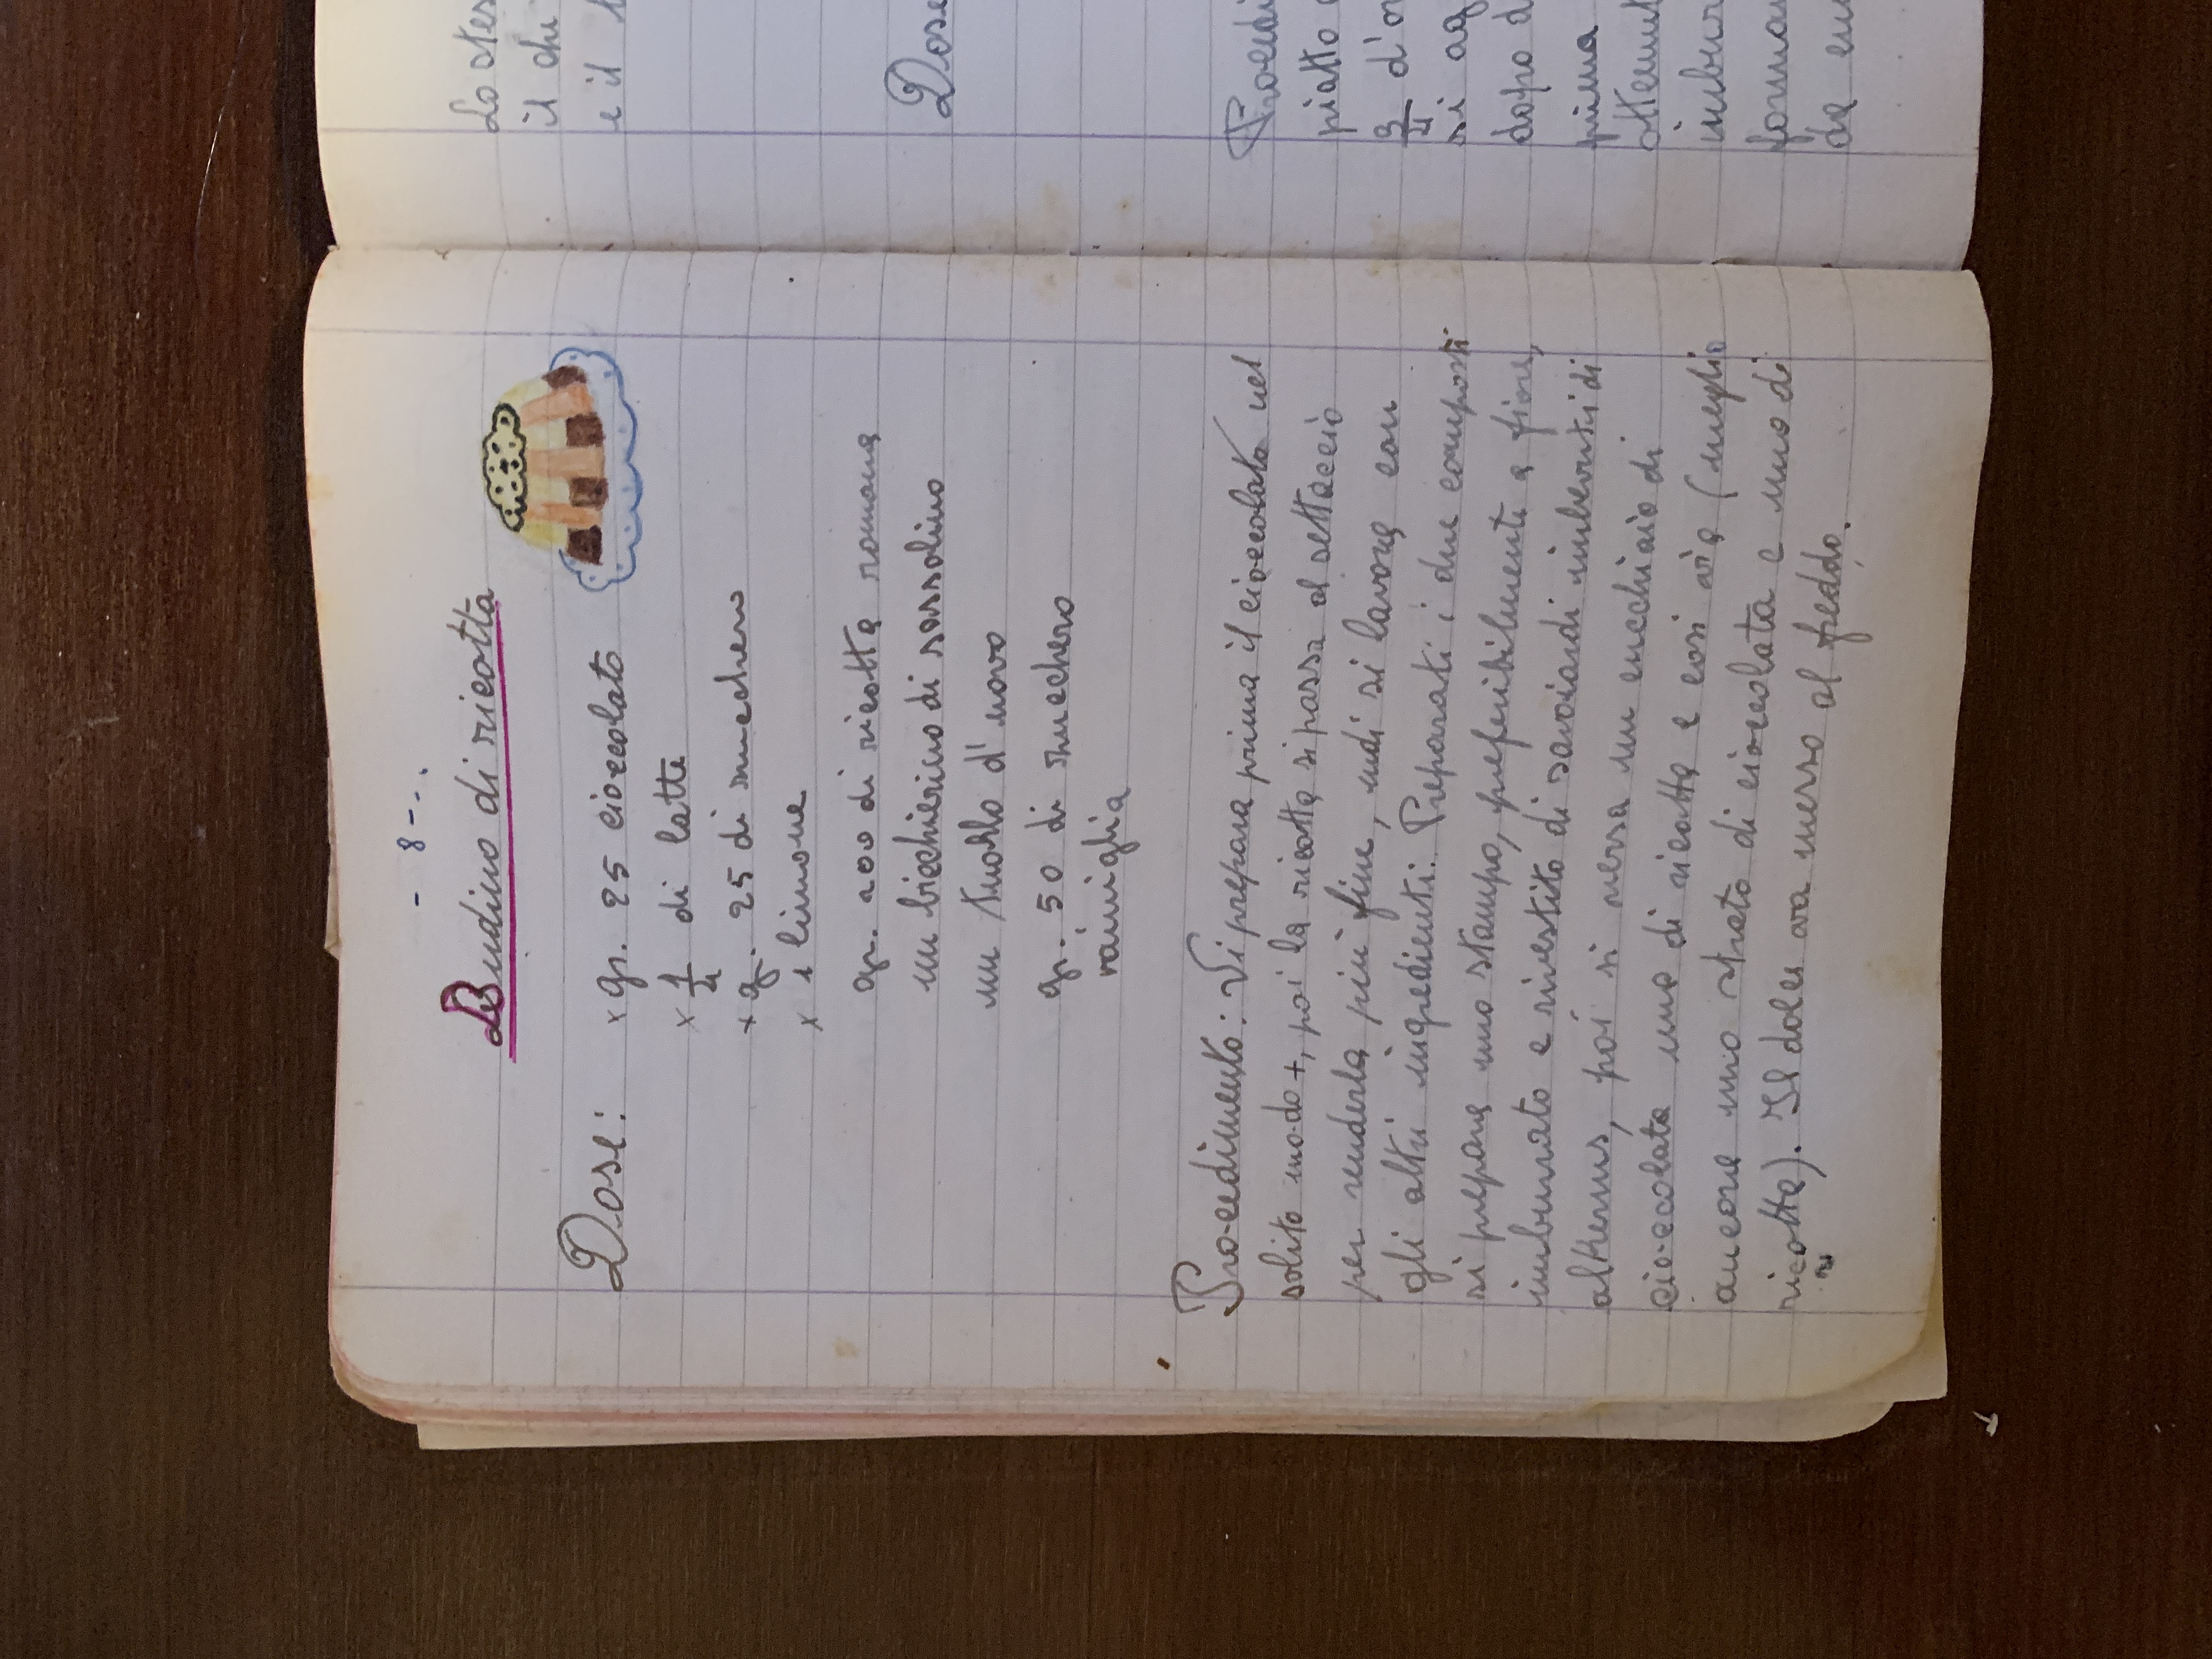 - 8 - - .
Budino di ricotta
Dose: x gr. 25 cioccolato
x 1/4 di latte
x g. 25 di zucchero
x 1 limone
gr. 200 di ricotta romana
un bicchierino di sassolino
un tuorlo d' uovo
gr. 50 di zucchero
vainiglia
Procedimento: Si prepara prima il cioccolato nel
solito modo +, poi la ricotta si passa al settaccio
per renderla più fine, indi si lavora con
gli altri ingredienti. Preparati i due composti
si prepara uno stampo, preferibilmente a fiore,
imburrato e rivestito di savoiardi imbevuti di
alkermus, poi si versa un cucchiaio di
cioccolata uno di ricotta e cosi via (meglio
ancora uno strato di cioccolata e uno di
ricotta). Il dolce va messo al freddo.
Lo stes
il che
e il
Dose
Procedi
piatto
3/4 d'or
si ag
dopo d
prima
ottenut
imbur
forma
da